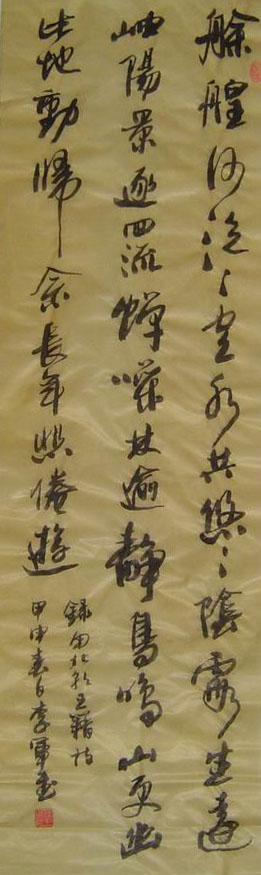 艅艎何泛泛空水共悠悠陰霞生遠
岫陽景逐回流蟬噪林逾靜鳥鳴山更幽
此地動歸念長年悲倦遊
錄南北朝王籍詩
甲申春日李軍書